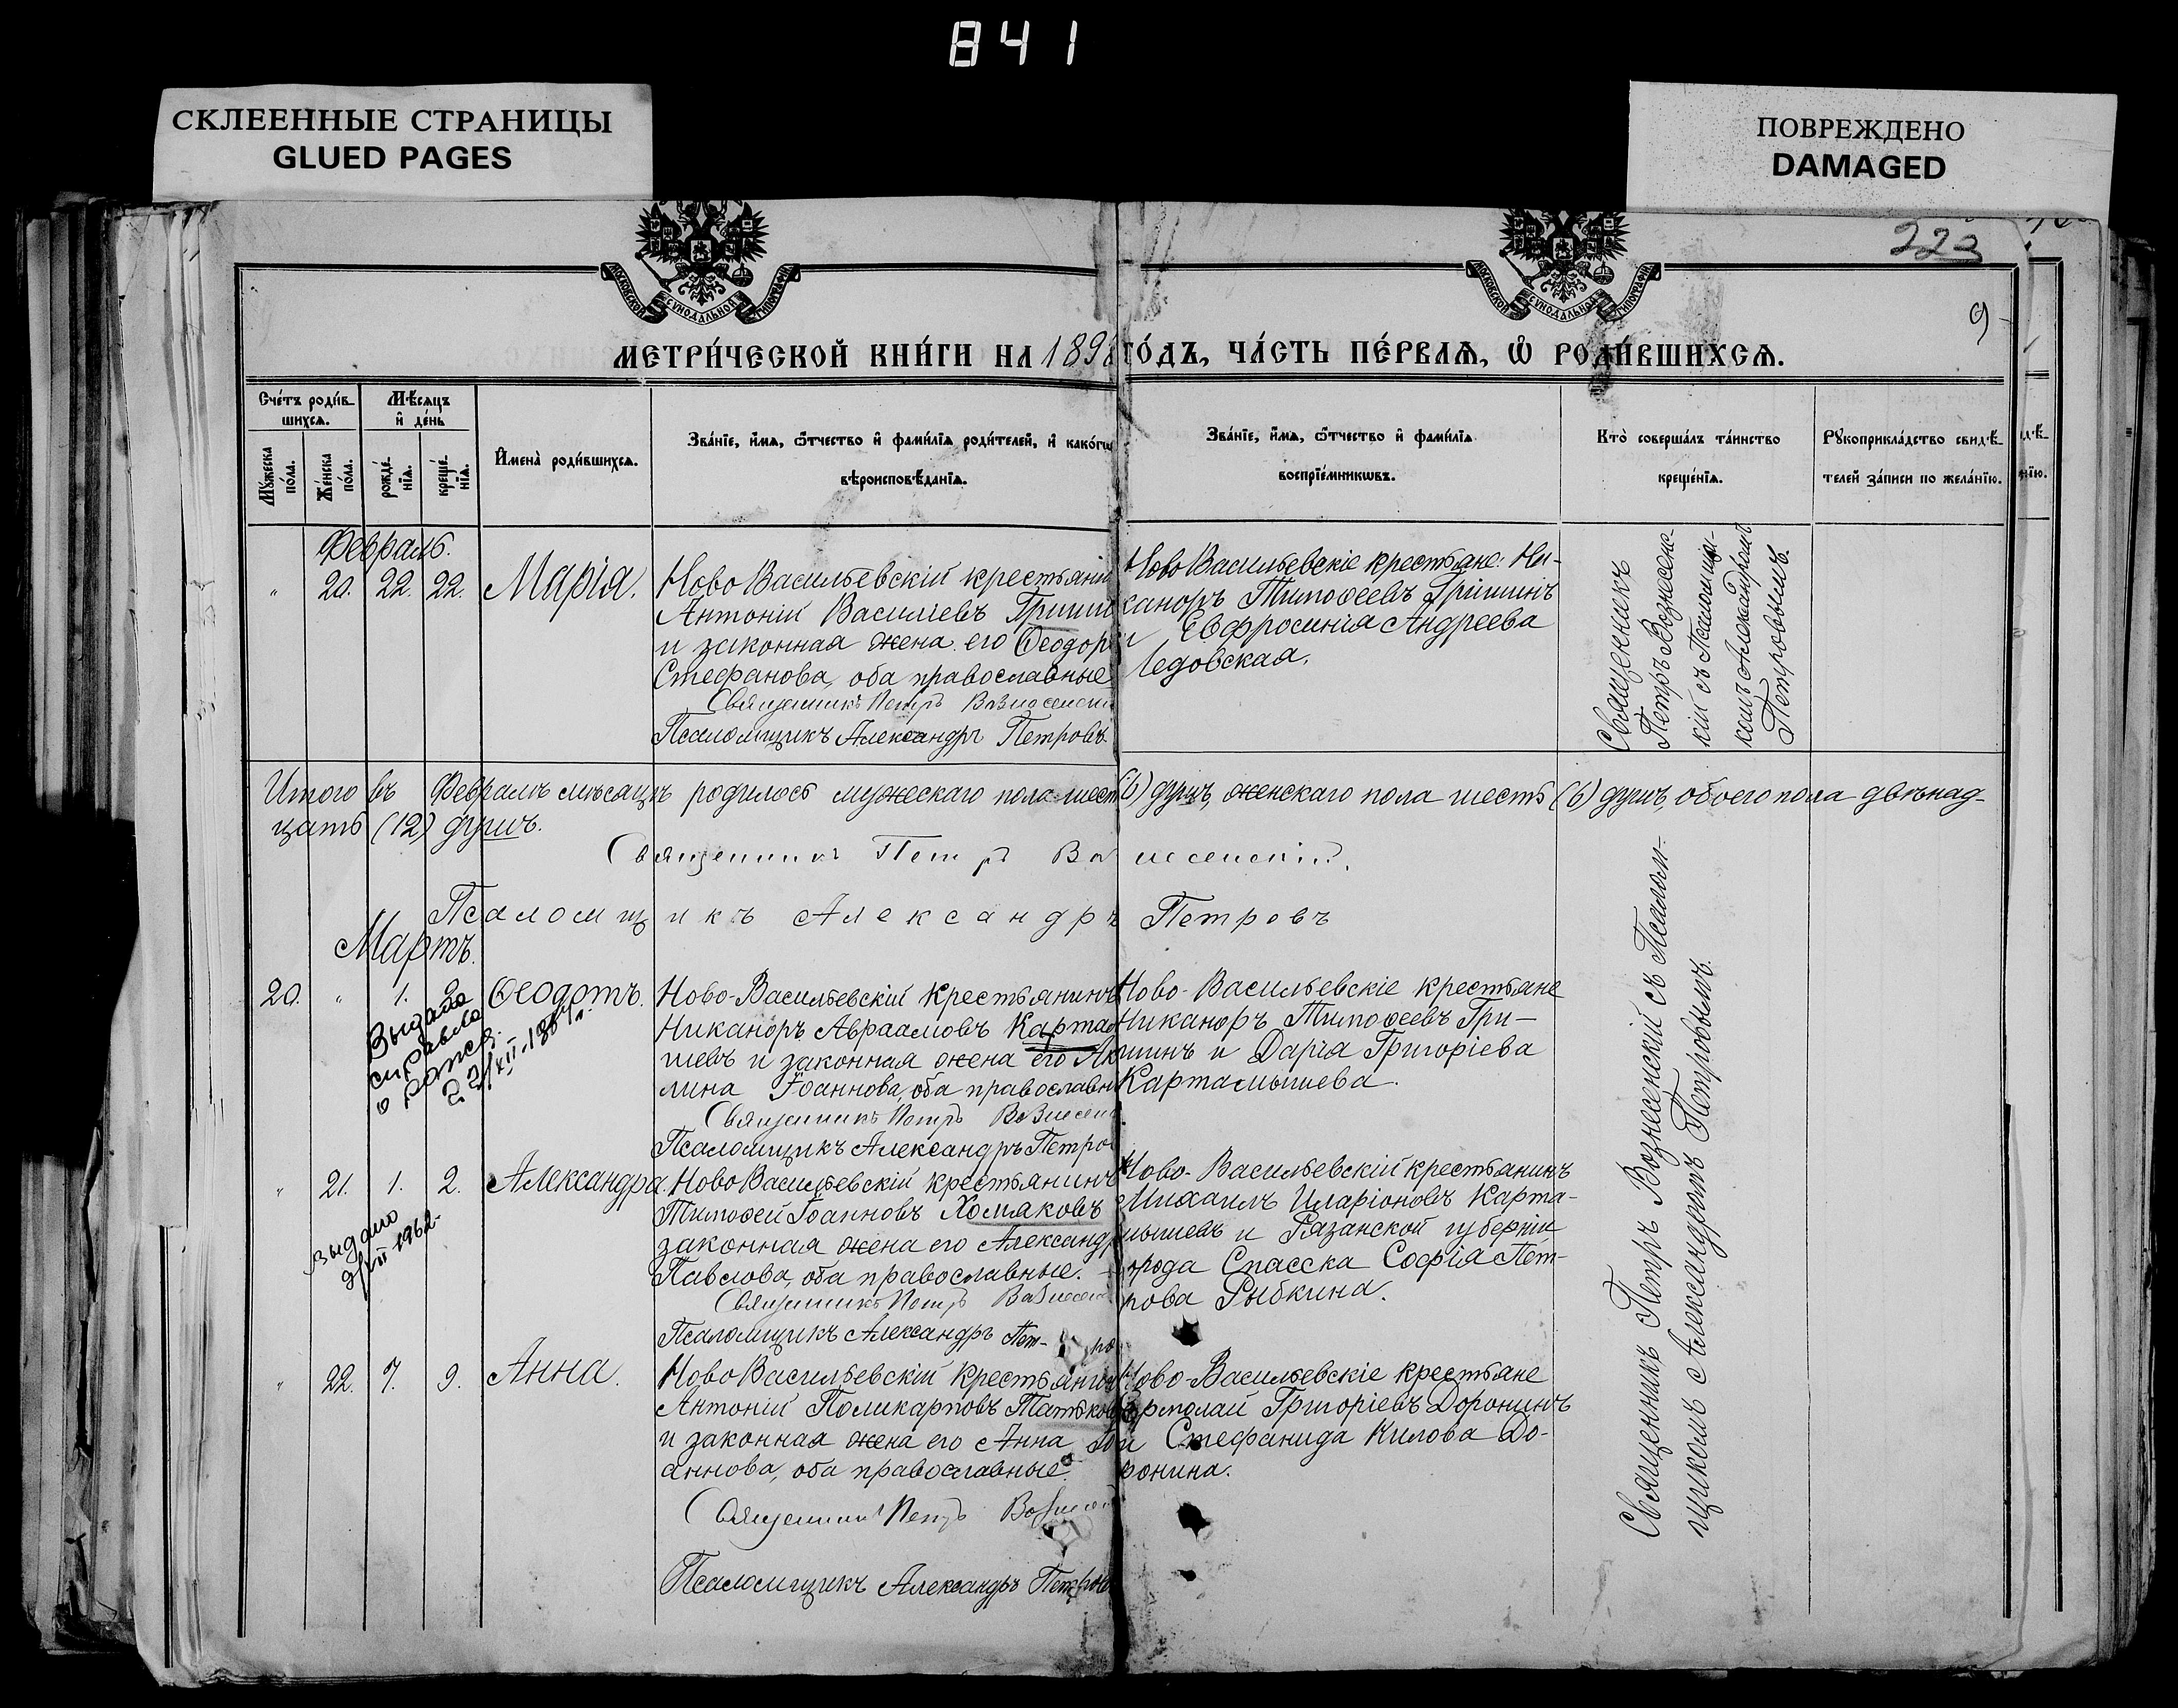 841
СКЛЕЕННЫЕ СТРАНИЦЫ
GLUED PAGES
ПОВРЕЖДЕНО
DAMAGED
223
9
МОСКОВСКОЙ СѴНОДАЛЬНОЙ ТИПОГРАФІИ
МОСКОВСКОЙ СѴНОДАЛЬНОЙ ТИПОГРАФІИ
МЕТРИ́ЧЕСКОЙ КНИ́ГИ НА 189 ГО́ДЪ, ЧА́СТЬ ПЕ́РВАѦ, Ѽ РОДИ́ВШИХСѦ.
Сче́тъ роди́в-
шихсѧ.
Мѣ́сѧцъ
и҆ де́нь
Мꙋ́жеска
по́ла.
Же́нска
по́ла.
рожде́-
нїѧ.
креще́-
нїѧ.
И҆мена̀ роди́вшихсѧ.
Зва́нїе, и҆́мѧ, ѻ҆́тчество и҆ фами́лїѧ роди́телей, и҆ како́гѡ
вѣроисповѣ́данїѧ.
Зва́нїе, и҆́мѧ, ѻ҆́тчество и҆ фами́лїѧ
воспрїе́мникѡвъ.
Кто̀ соверша́лъ та́инство
креще́нїѧ.
Рꙋкоприкла́дство свидѣ́-
телей за́писи по жела́нїю.
Февраль.
" 20. 22. 22. Марія.
Ново Васильевскій крестьянин
Антоній Василіевъ Гриши
и законная жена его Ѳеодор
Стефанова, оба православные
Священникъ Петръ Вознесенскі
Псаломщикъ Александръ Петровъ.
Ново Васильевскіе крестьяне: Ни-
каноръ Тимоѳеевъ Гришинъ
и Евфросинія Андреева
Ледовская.
Священникъ
Петръ Вознесенс-
кій съ Псаломщи-
комъ Александромъ
Петровымъ.
Итого въ Февралѣ мѣсяцѣ родилось мужескаго пола шест (6) душъ, женскаго пола шесть (6) душъ, обоего пола двѣнад-
цать (12) душъ.
Священникъ Петръ Вознесенскій.
Псаломщикъ Александръ Петровъ
Мартъ.
20. " 1. 2. Ѳеодотъ.
Выдана
справка
о рожд.
Ново-Васильевскій крестьянинъ
Никаноръ Авраамовъ Картам
шевъ и законная жена его Ак
лина Іоаннова, оба православн
Священникъ Петръ Вознесен
Псаломщикъ Александръ Петро
Ново-Васильевскіе крестьяне
Никаноръ Тимоѳеевъ Гри-
шинъ и Дарія Григоріева
Картамышева.
" 21. 1. 2. Александра.
выдано
1962
Ново Васильевскій крестьянинъ
Тимоѳей Іоанновъ Хомяковъ
законная жена его Александр
Павлова, оба православные.
Священникъ Петръ Вознесен
Псаломщикъ Александръ Пет-ро
Ново-Васильевскій крестьянинъ
Михаилъ Иларіоновъ Карта-
мышевъ и Рязанской губерніи
города Спасска Софія Пет-
рова Рыбкина.
" 22. 7. 9. Анна.
Ново Васильевскій крестьянин
Антоній Поликарповъ Татьков
и законная жена его Анна Іо
аннова, оба православные.
Священникъ Петръ Вознесен
Псаломщикъ Александръ Петров
Ново-Васильевскіе крестьяне
Ермолай Григоріевъ Доронинъ
и Стефанида Килова До-
ронина.
Священникъ Петръ Вознесенскій съ Псалом-
щикомъ Александромъ Петровымъ.